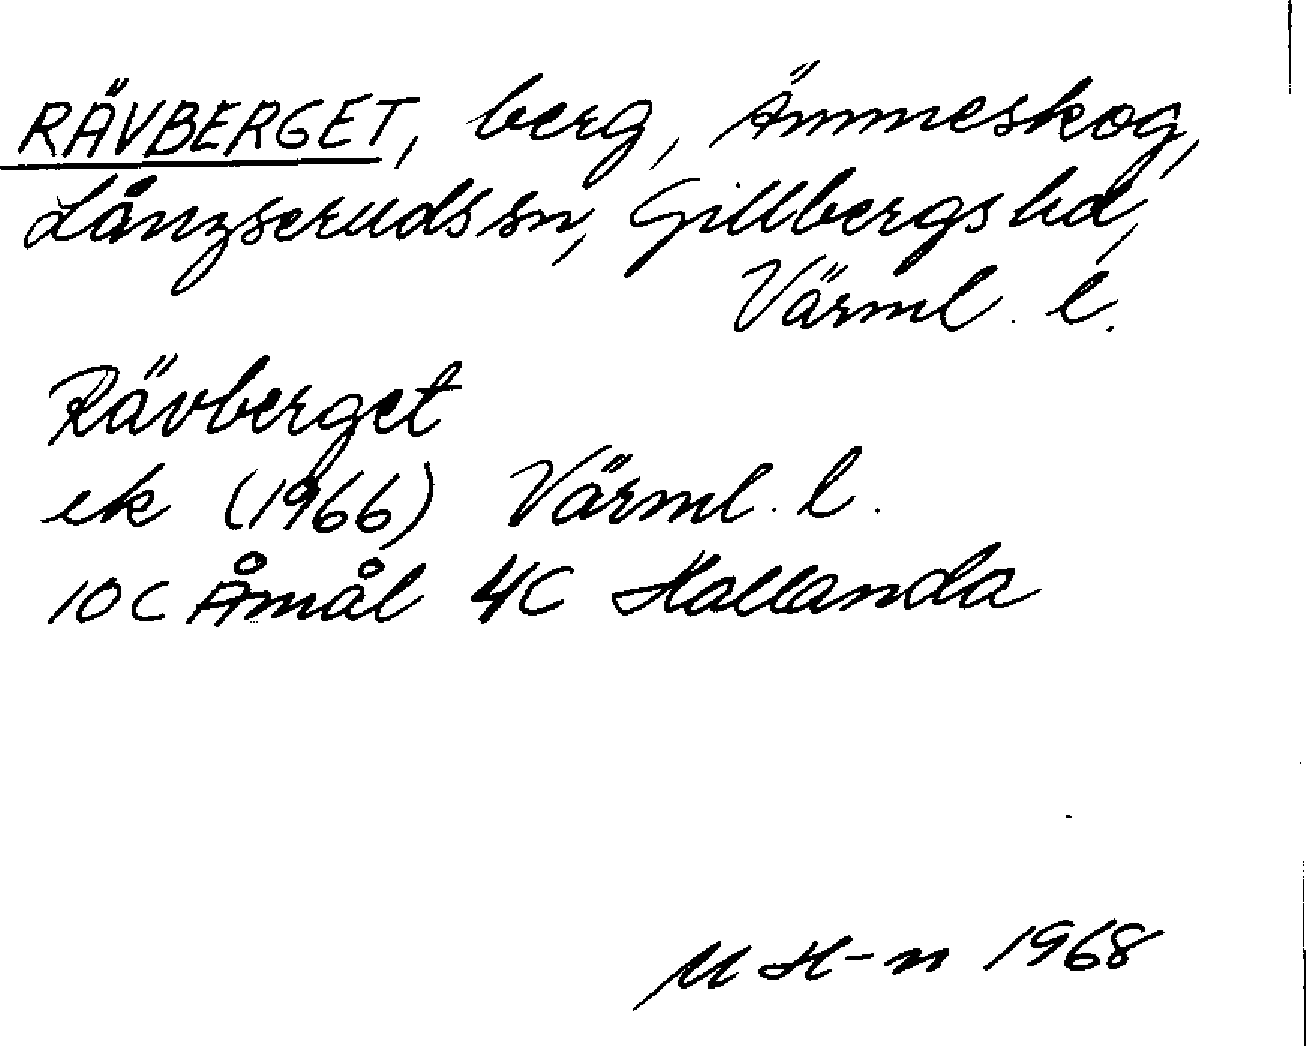 RÄVBERGET, berg, Ämmeskog,
Långseruds sn, Gillbergs hd,
Värml. l.
Rävberget
ek (1966) Värml. l.
10 C Åmål 4C Hallanda
M H-n 1968